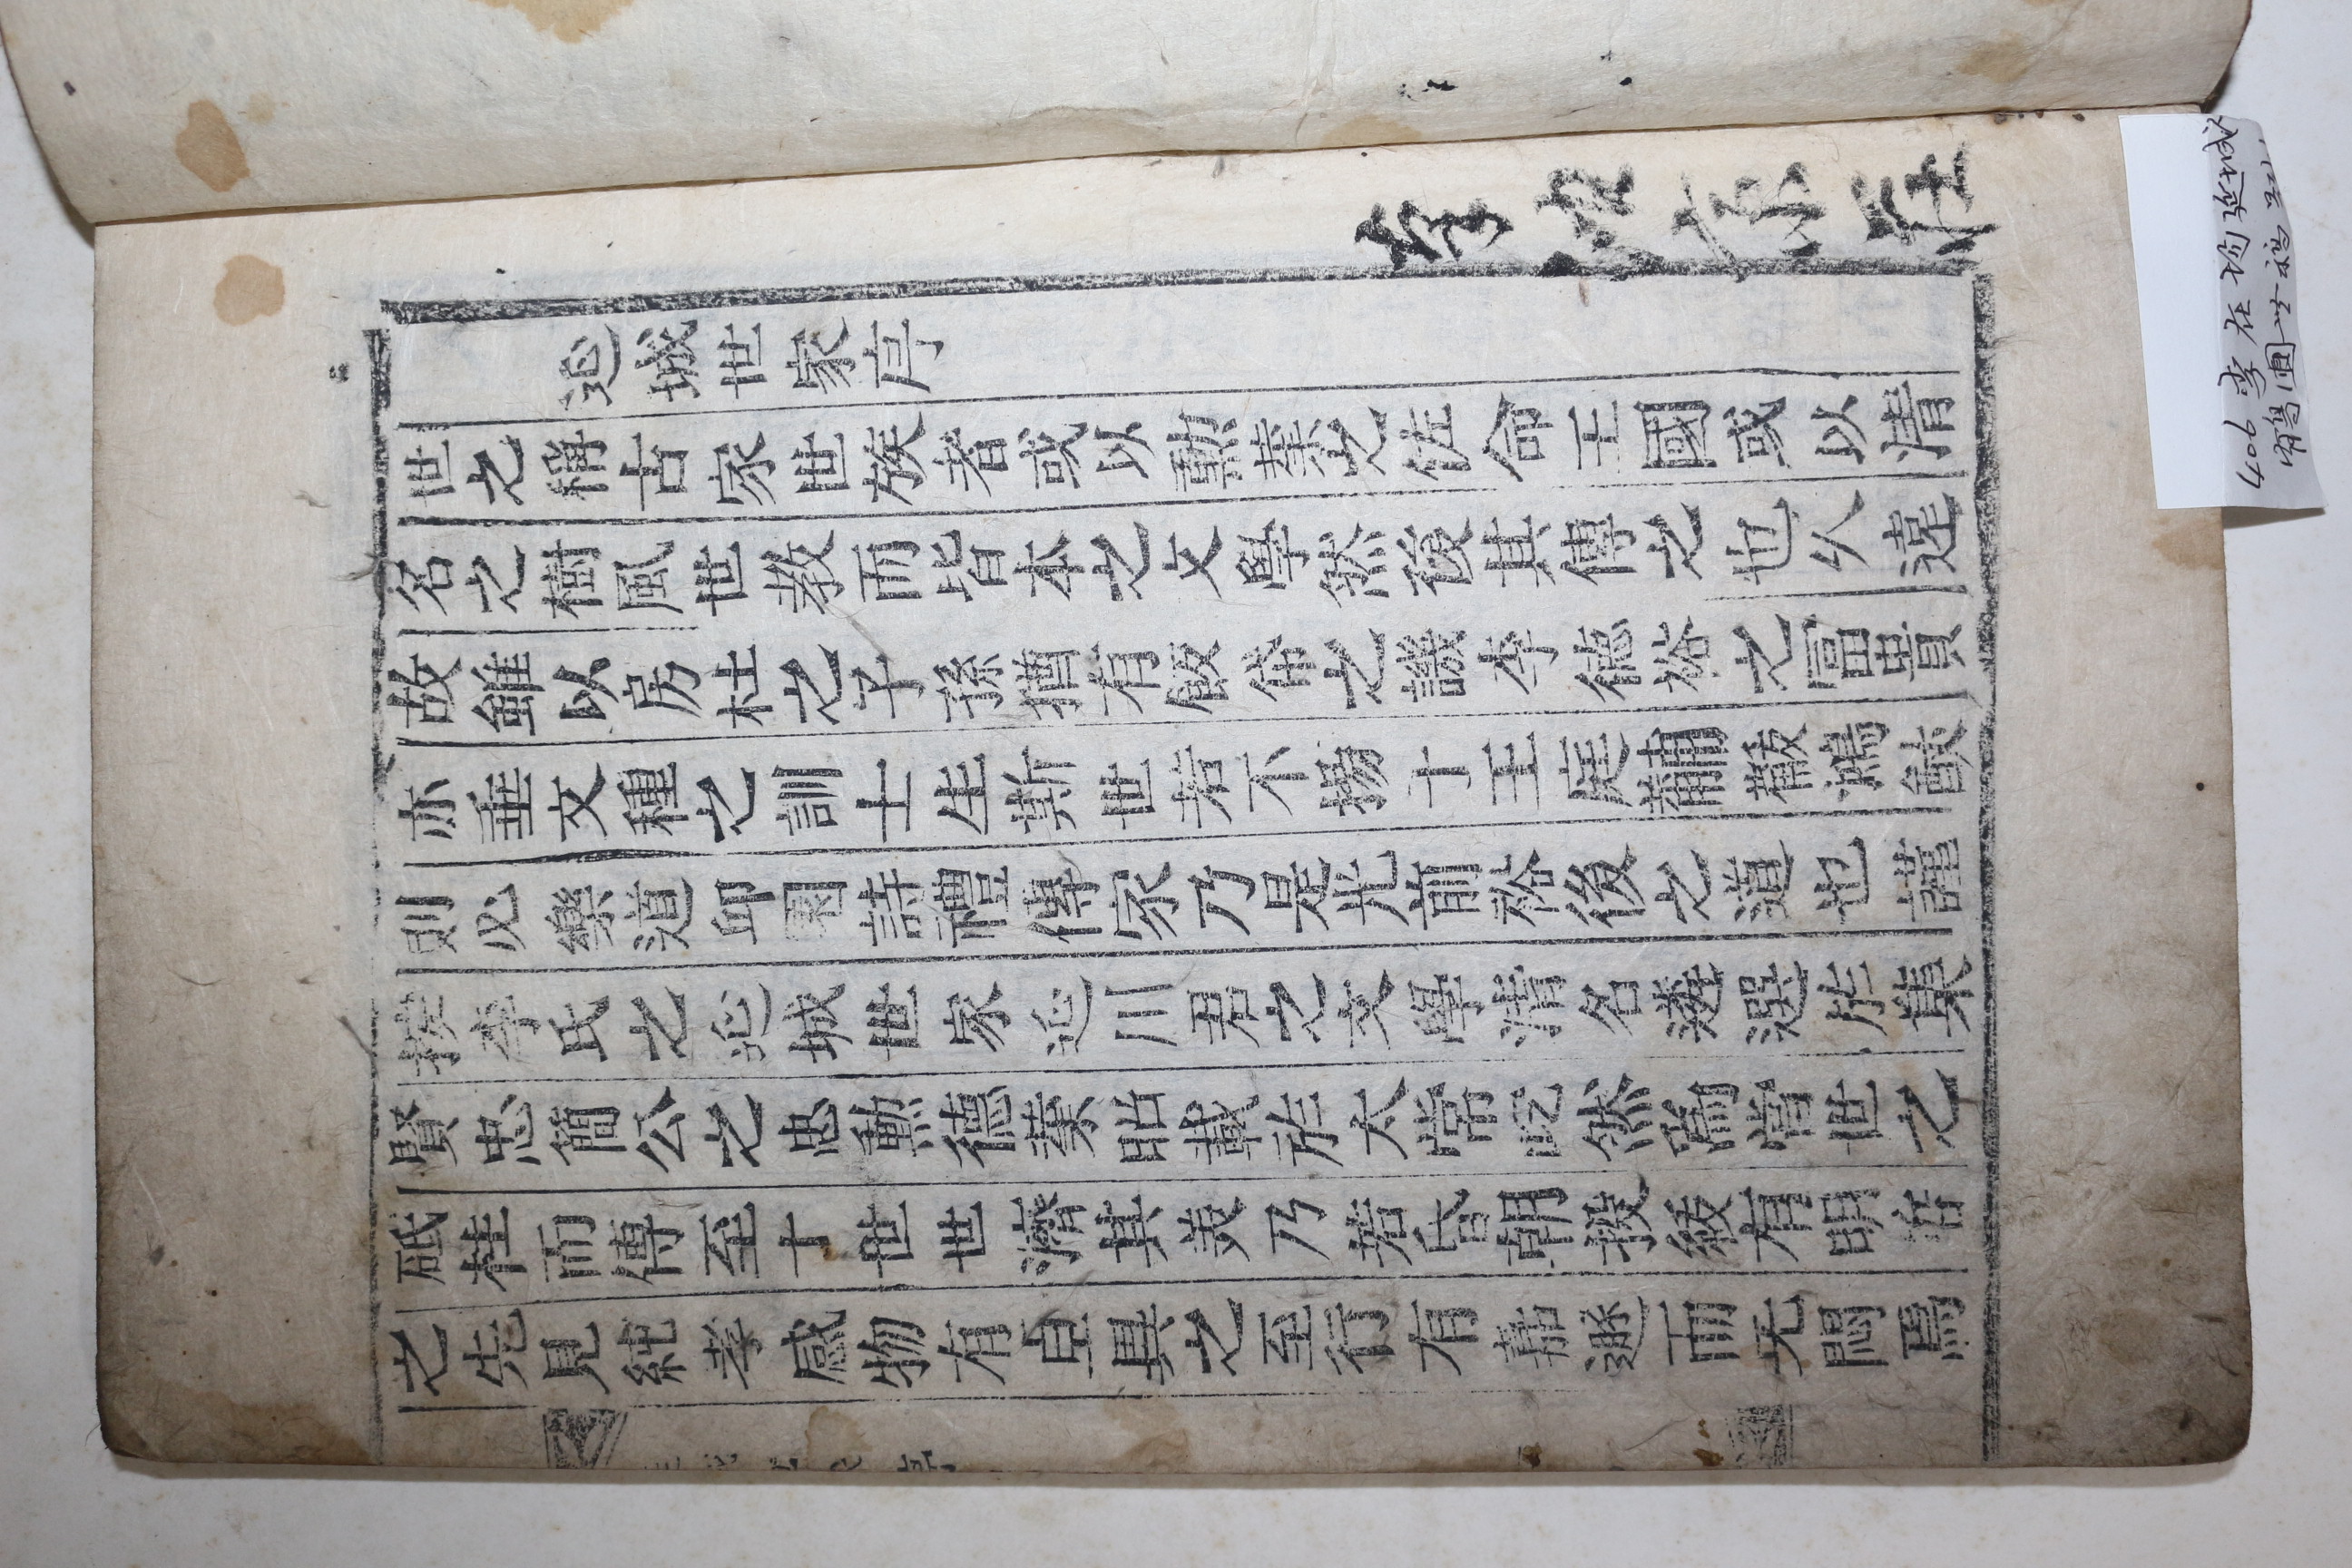 延城世家序
世之稱古家世族者或以勲業之佐命王國或以清
名之樹風世教而皆本之文學然後其傳之也久遠
故雖以房杜之子孫猶有飯帒之譏李德裕之冨貴
亦垂文種之訓士生斯世若不揚于王庭黼黻鴻猷
則必樂道邱園詩禮傳家乃是光前裕後之道也謹
按李氏之延城世家延川君之文學清名遴選於集
賢忠簡公之忠勲德業昭載於太常屹然爲當世之
砥柱而傳至十世世濟其美乃若昏朝投紱有明哲
之先見純孝感物有卓異之至行有嘉遯而无悶焉
406 李在均延城
鶴圃世稿